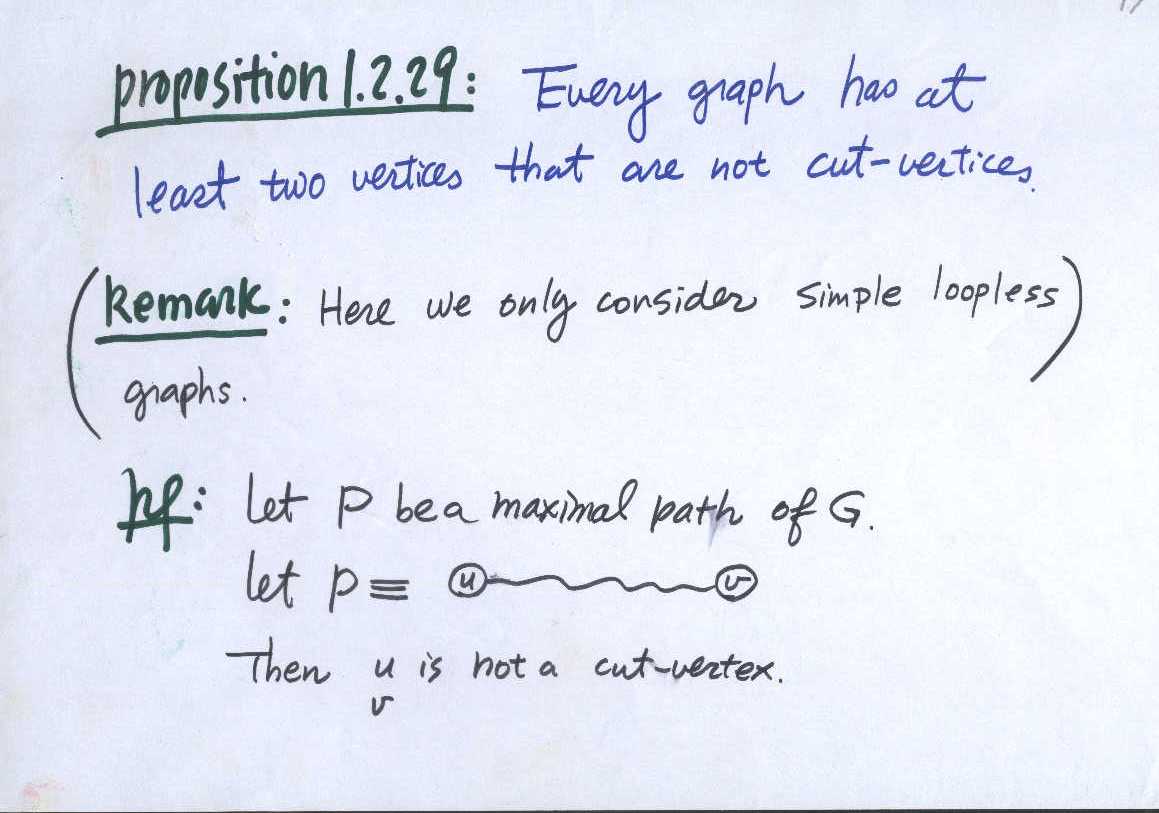 proposition 1.2.29: Every graph has at
least two vertices that are not cut-vertices.
(Remark: Here we only consider simple loopless)
graphs.
pf: Let P be a maximal path of G.
let P ≡ u v
Then u is not a cut-vertex.
v